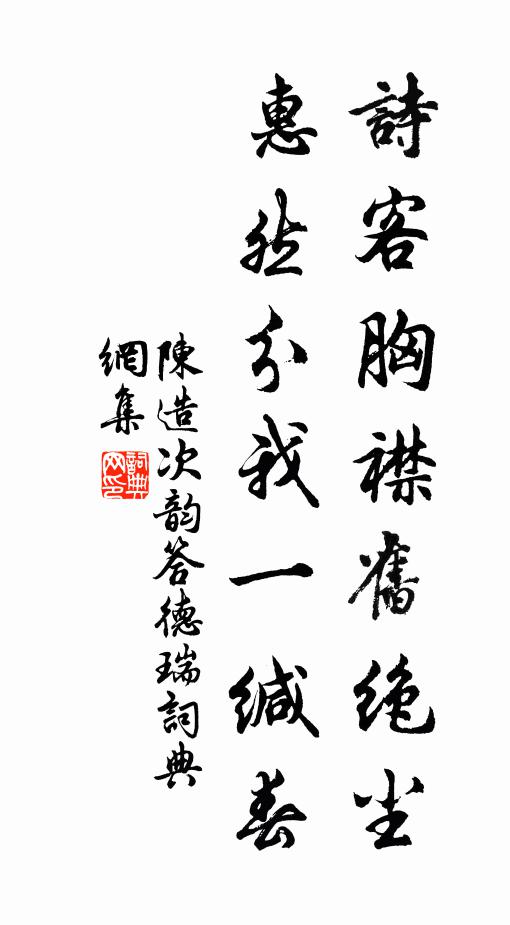 詩客胸襟舊絶尘
惠然分我一緘春
陳造次韵答德瑞詞典
網集
詞典网印